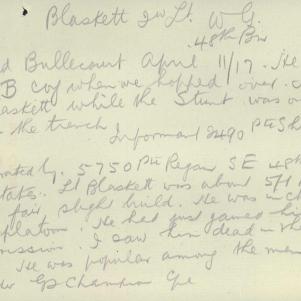 Blaskett 2nd Lt. W G.
48th Bn
d Bullecourt April 11/17. He
B coy when we hopped over.
askett while the Stunt was o
the trench
Informant 2490 Pte Sh
5750 Pte Regan S E 48th
tates. Lt Blaskett was about 5/1
fair slight build. He was in ch
platoon. He had just gained h
mission. I saw him dead in the
He was popular among the men